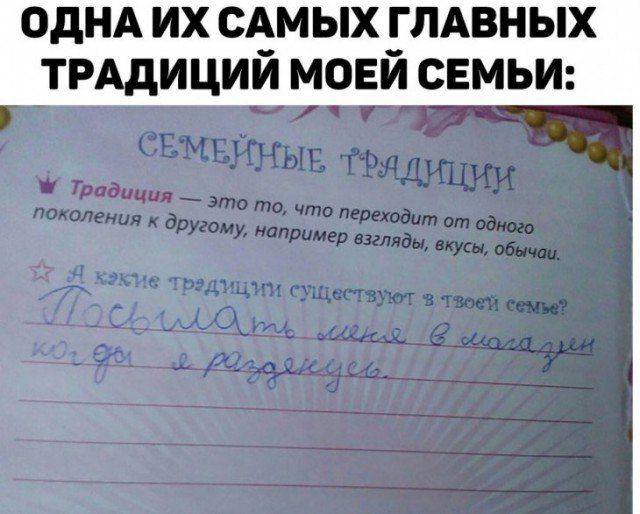 ОДНА ИХ САМЫХ ГЛАВНЫХ
ТРАДИЦИЙ МОЕЙ СЕМЬИ:
СЕМЕЙНЫЕ ТРАДИЦИИ
Традиция — это то, что переходит от одного
поколения к другому, например взгляды, вкусы, обычаи.
А какие традиции существуют в твоей семье?
Посылать меня в магазин
когда я разденусь.